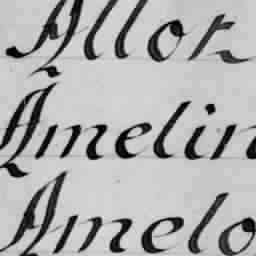 Allot
Amelin
Amelo